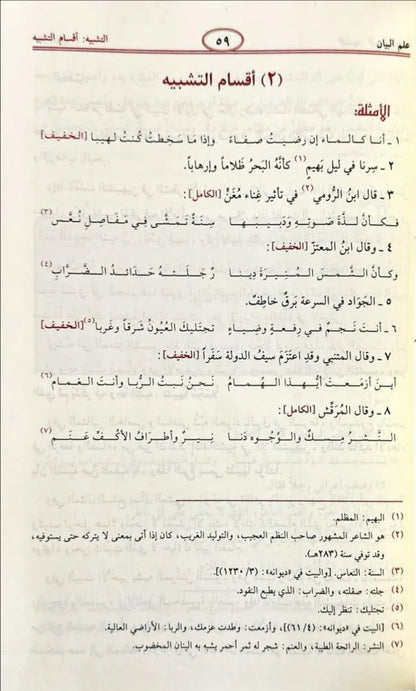 علم البيان ٥٩ التشبيه: أقسام التشبيه
(٢) أقسام التشبيه
الأمثلة:
١ - أنا كالماء إن رضيتُ صفاءً وإذا ما سَخِطتُ كُنتُ لهيبا [الخفيف]
٢ - سِرنا في ليل بَهيم(١) كأنَّه البَحرُ ظَلاماً وإرهاباً.
٣ - قال ابنُ الرُّومي(٢) في تأثير غِناء مُغَنٍّ [الكامل]:
فكأنَّ لذَّةَ صَوتِهِ ودَبيبَها سِنَةٌ تَمَشَّى في مَفَاصِلِ نُعَّسِ(٣)
٤ - وقال ابنُ المعتزّ [الخفيف]:
وكأنَّ الشَّمسَ المُنيرَةَ دِينا رٌ جَلَتهُ حَدائدُ الضَّرَّابِ(٤)
٥ - الجَوَاد في السرعة بَرقٌ خاطِفٌ.
٦ - أنت نَجمٌ في رِفعةٍ وضِياءٍ تجتَليكَ العُيُونُ شَرقاً وغَربا(٥) [الخفيف]
٧ - وقال المتنبي وقدِ اعتَزَمَ سيفُ الدولة سَفَراً [الخفيف]:
أينَ أزمَعتَ أيُّهذا الهُمامُ نَحنُ نَبتُ الرُّبا وأنتَ الغَمامُ(٦)
٨ - وقال المُرَقِّش [الكامل]:
النَّشرُ مِسكٌ والوُجُوه دَنا نِيرٌ وأطرَافُ الأكُفِّ عَنَم(٧)
(١) البهيم: المظلم.
(٢) هو الشاعر المشهور صاحب النظم العجيب، والتوليد الغريب، كان إذا أتى بمعنى لا يتركه حتى يستوفيه،
وقد توفي سنة (٢٨٣هـ).
(٣) السنة: النعاس. [والبيت في «ديوانه»: (٣/ ١٢٣٠)].
(٤) جلته: صقلته، والضراب: الذي يطبع النقود.
(٥) تجتليك: تنظر إليك.
(٦) [البيت في «ديوانه»: (٤/ ٦١)]، وأزمعت: وطدت عزمك، والربا: الأراضي العالية.
(٧) النشر: الرائحة الطيبة، والعنم: شجر له ثمر أحمر يشبه به البنان المخضوب.